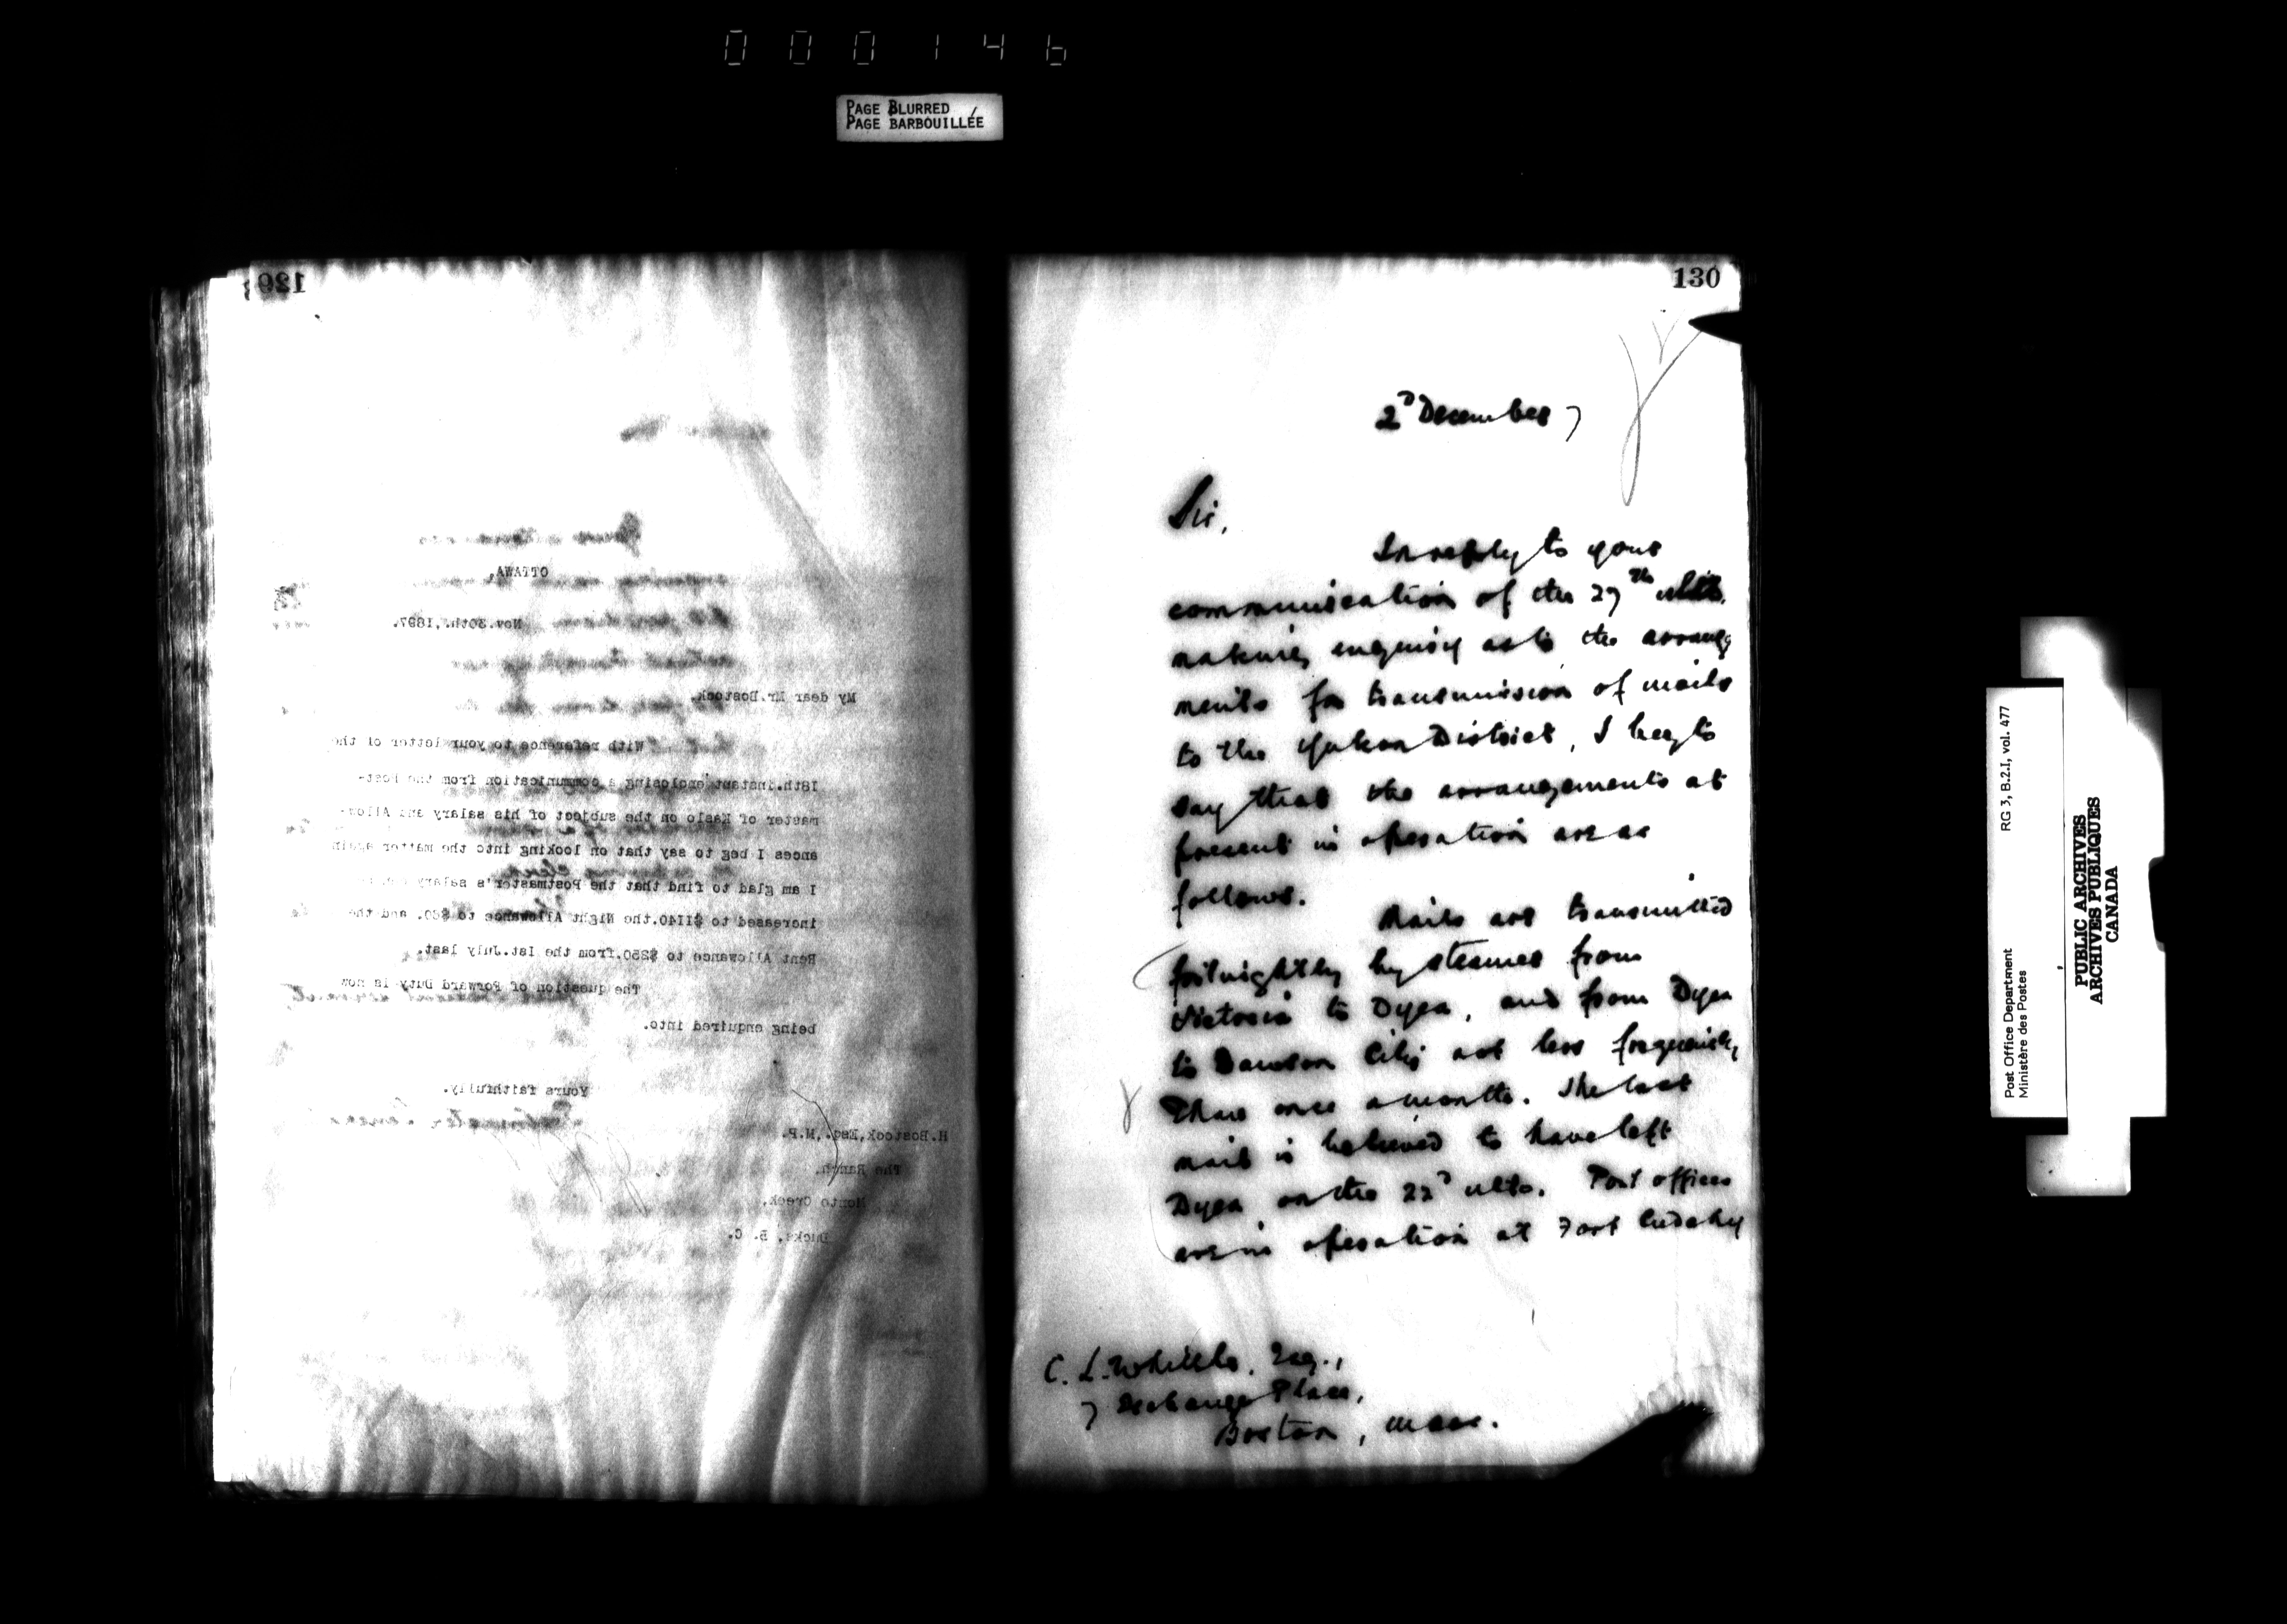 000146
PAGE BLURRED
PAGE BARBOUILLÉE
129
OTTAWA,
Nov.30th.,1897.
My dear Mr.Bostock.
With reference to your letter of the
18th.instant enclosing a communication from the Post-
master of Kaslo on the subject of his salary and Allow-
ances I beg to say that on looking into the matter again
I am glad to find that the Postmaster's salary
increased to $1140.the Night Allowance to $60. and the
Rent Allowance to $250.from the 1st.July last.
The question of Forward Duty is now
being enquired into.
Yours faithfully.
H.Bostock,Esq.,M.P.
The Ranch.
Monte Creek.
Ducks, B. C.
130
2d December 7
Sir,
In reply to your
communication of the 27th ulto.
making enquiry as to the arrange
ments for transmission of mails
to the Yukon District, I beg to
say that the arrangements at
present in operation are as
follows.
Mails are transmitted
fortnightly by steamer from
Victoria to Dyea, and from Dyea
to Dawson City not less frequently
than once a month. The last
mail is believed to have left
Dyea on the 22d ulto. Post offices
are in operation at Fort Cudahy
C. L. Esq.,
7 Exchange Place,
Boston, Mass.
Post Office Department
Ministère des Postes
RG 3, B.2.I, vol. 477
PUBLIC ARCHIVES
ARCHIVES PUBLIQUES
CANADA